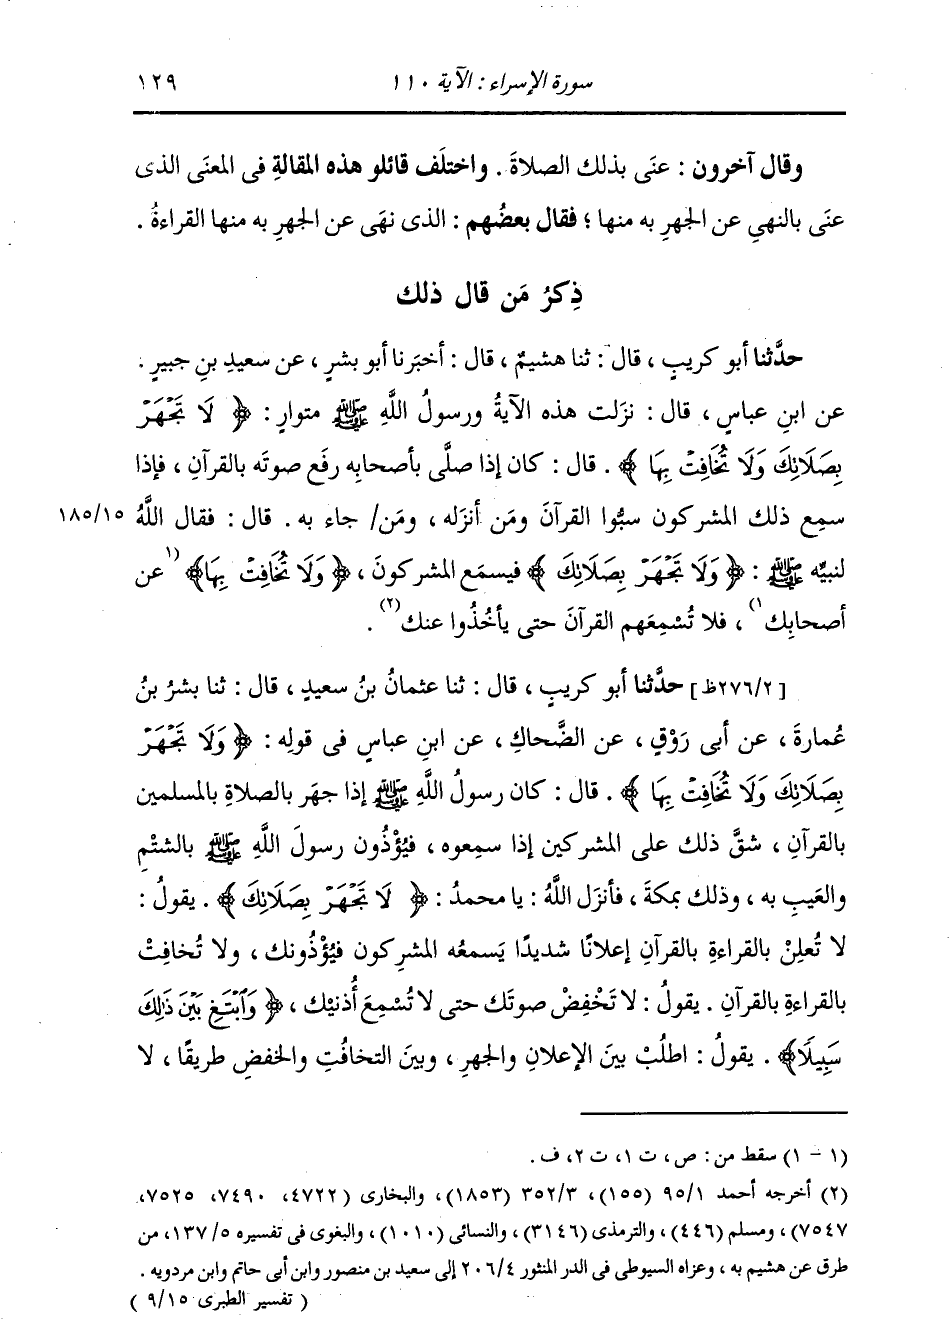 سورة الإسراء : الآية ١١٠ ١٢٩
وقال آخرون : عنَى بذلك الصلاةَ . واختلَف قائلو هذه المقالةِ فى المعنَى الذى
عنَى بالنهىِ عن الجهرِ به منها ؛ فقال بعضُهم : الذى نهَى عن الجهرِ به منها القراءةُ .
ذِكرُ مَن قال ذلك
حدَّثنا أبو كريبٍ ، قال : ثنا هشيمٌ ، قال : أخبَرنا أبو بشرٍ ، عن سعيدِ بنِ جبيرٍ .
عن ابنِ عباسٍ ، قال : نزَلت هذه الآيةُ ورسولُ اللَّهِ ﷺ متوارٍ : ﴿ لَا تَجْهَرْ
بِصَلَاتِكَ وَلَا تُخَافِتْ بِهَا ﴾ . قال : كان إذا صلَّى بأصحابِه رفَع صوتَه بالقرآنِ ، فإذا
سمِع ذلك المشركون سبُّوا القرآنَ ومَن أنزَله ، ومَن/ جاء به . قال : فقال اللَّهُ ١٨٥/١٥
لنبيِّه ﷺ : ﴿ وَلَا تَجْهَرْ بِصَلَاتِكَ ﴾ فيسمَع المشركونَ ، ﴿ وَلَا تُخَافِتْ بِهَا﴾ (١ عن
أصحابِك ١) ، فلا تُسْمِعَهم القرآنَ حتى يأخُذُوا عنك (٢) .
[٢٧٦/٢ظ] حدَّثنا أبو كريبٍ ، قال : ثنا عثمانُ بنُ سعيدٍ ، قال : ثنا بشرُ بنُ
عُمارةَ ، عن أبى رَوْقٍ ، عن الضَّحاكِ ، عن ابنِ عباسٍ فى قولِه : ﴿ وَلَا تَجْهَرْ
بِصَلَاتِكَ وَلَا تُخَافِتْ بِهَا ﴾ . قال : كان رسولُ اللَّهِ ﷺ إذا جهَر بالصلاةِ بالمسلمين
بالقرآنِ ، شقَّ ذلك على المشركين إذا سمِعوه ، فيُؤْذُون رسولَ اللَّهِ ﷺ بالشتْمِ
والعَيبِ به ، وذلك بمكةَ ، فأنزَل اللَّهُ : يا محمدُ : ﴿ لَا تَجْهَرْ بِصَلَاتِكَ ﴾ . يقولُ :
لا تُعلِنْ بالقراءةِ بالقرآنِ إعلانًا شديدًا يَسمعُه المشركون فيُؤْذُونك ، ولا تُخافِتْ
بالقراءةِ بالقرآنِ . يقولُ : لا تَخْفِضْ صوتَك حتى لا تُسْمِعَ أُذنيْك ، ﴿ وَابْتَغِ بَيْنَ ذَٰلِكَ
سَبِيلًا﴾ . يقولُ : اطلُبْ بينَ الإعلانِ والجهرِ ، وبينَ التخافُتِ والخفضِ طريقًا ، لا
(١ - ١) سقط من : ص ، ت ١ ، ت ٢ ، ف .
(٢) أخرجه أحمد ٩٥/١ (١٥٥) ، ٣٥٢/٣ (١٨٥٣) ، والبخارى (٤٧٢٢، ٧٤٩٠، ٧٥٢٥،
٧٥٤٧) ، ومسلم (٤٤٦) ، والترمذى (٣١٤٦) ، والنسائى (١٠١٠) ، والبغوى فى تفسيره ١٣٧/٥ ، من
طرق عن هشيم به ، وعزاه السيوطى فى الدر المنثور ٢٠٦/٤ إلى سعيد بن منصور وابن أبى حاتم وابن مردويه .
( تفسير الطبرى ٩/١٥ )